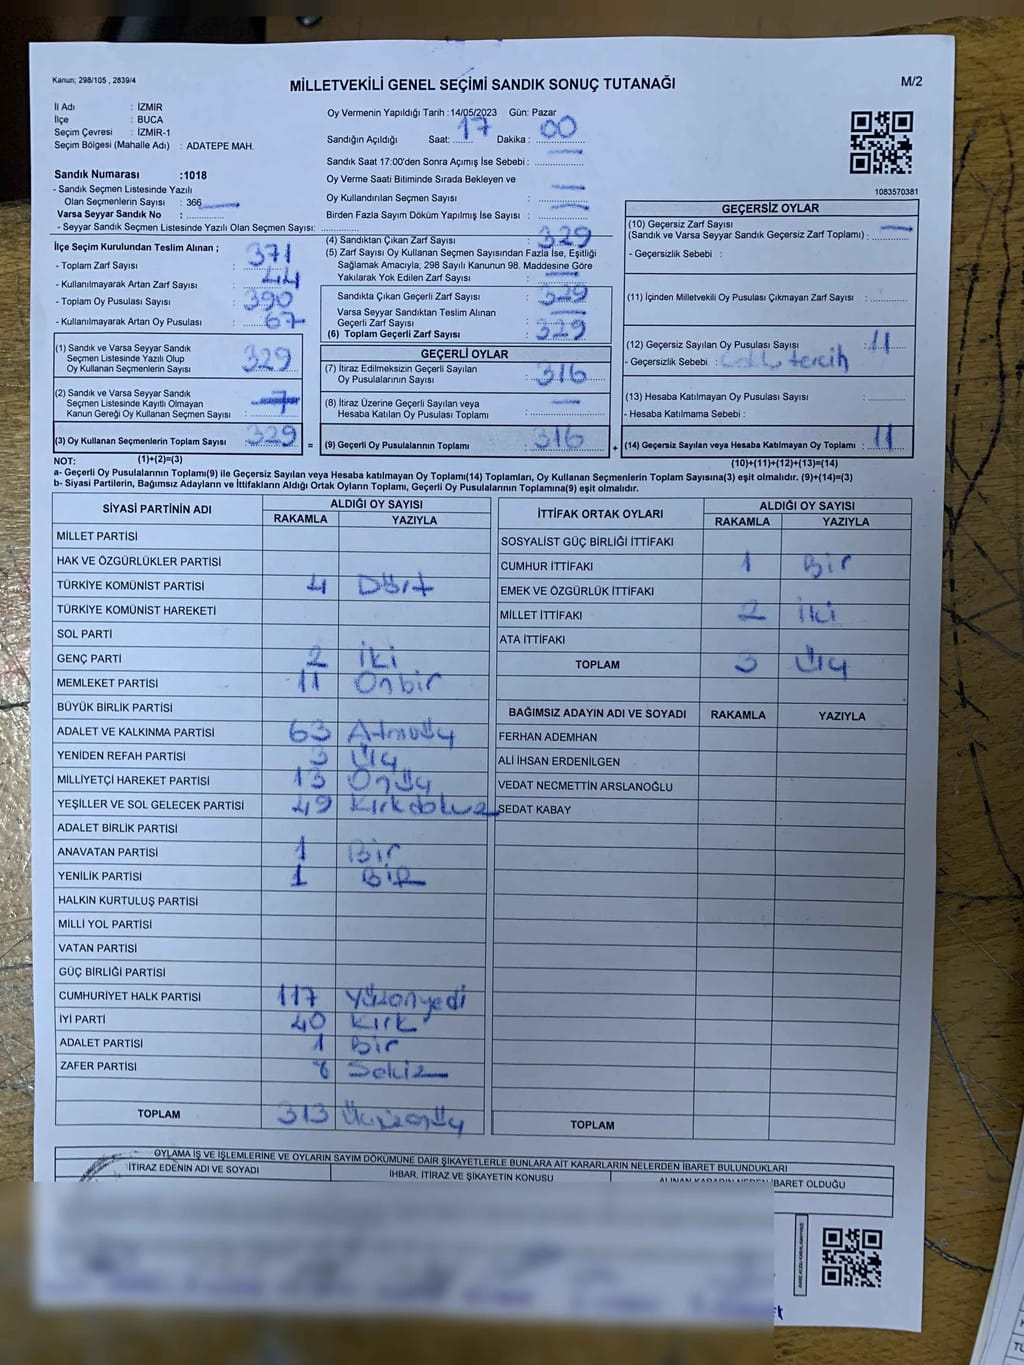 Kanun, 298/105 , 2839/4
MİLLETVEKİLİ GENEL SEÇİMİ SANDIK SONUÇ TUTANAĞI
M/2
İl Adı : İZMİR
İlçe : BUCA
Seçim Çevresi : İZMİR-1
Seçim Bölgesi (Mahalle Adı) : ADATEPE MAH.
Oy Vermenin Yapıldığı Tarih : 14/05/2023 Gün: Pazar
Sandığın Açıldığı Saat: 17 Dakika : 00
Sandık Saat 17:00'den Sonra Açımış İse Sebebi :
Oy Verme Saati Bitiminde Sırada Bekleyen ve
Oy Kullandırılan Seçmen Sayısı :
Birden Fazla Sayım Döküm Yapılmış İse Sayısı :
1083570381
Sandık Numarası :1018
- Sandık Seçmen Listesinde Yazılı
Olan Seçmenlerin Sayısı : 366
Varsa Seyyar Sandık No :
- Seyyar Sandık Seçmen Listesinde Yazılı Olan Seçmen Sayısı:
İlçe Seçim Kurulundan Teslim Alınan ;
- Toplam Zarf Sayısı : 371
- Kullanılmayarak Artan Zarf Sayısı : 44
- Toplam Oy Pusulası Sayısı : 390
- Kullanılmayarak Artan Oy Pusulası : 67
(1) Sandık ve Varsa Seyyar Sandık
Seçmen Listesinde Yazılı Olup
Oy Kullanan Seçmenlerin Sayısı : 329
(2) Sandık ve Varsa Seyyar Sandık
Seçmen Listesinde Kayıtlı Olmayan
Kanun Gereği Oy Kullanan Seçmen Sayısı :
(3) Oy Kullanan Seçmenlerin Toplam Sayısı : 329
(1)+(2)=(3)
(4) Sandıktan Çıkan Zarf Sayısı : 329
(5) Zarf Sayısı Oy Kullanan Seçmen Sayısından Fazla İse, Eşitliği
Sağlamak Amacıyla; 298 Sayılı Kanunun 98. Maddesine Göre
Yakılarak Yok Edilen Zarf Sayısı :
Sandıkta Çıkan Geçerli Zarf Sayısı : 329
Varsa Seyyar Sandıktan Teslim Alınan
Geçerli Zarf Sayısı :
(6) Toplam Geçerli Zarf Sayısı : 329
GEÇERLİ OYLAR
(7) İtiraz Edilmeksizin Geçerli Sayılan
Oy Pusulalarının Sayısı : 316
(8) İtiraz Üzerine Geçerli Sayılan veya
Hesaba Katılan Oy Pusulası Toplamı :
= (9) Geçerli Oy Pusulalarının Toplamı : 316
GEÇERSİZ OYLAR
(10) Geçersiz Zarf Sayısı
(Sandık ve Varsa Seyyar Sandık Geçersiz Zarf Toplamı) :
- Geçersizlik Sebebi :
(11) İçinden Milletvekili Oy Pusulası Çıkmayan Zarf Sayısı :
(12) Geçersiz Sayılan Oy Pusulası Sayısı : 11
- Geçersizlik Sebebi : tercih
(13) Hesaba Katılmayan Oy Pusulası Sayısı :
- Hesaba Katılmama Sebebi :
+ (14) Geçersiz Sayılan veya Hesaba Katılmayan Oy Toplamı : 11
(10)+(11)+(12)+(13)=(14)
NOT:
a- Geçerli Oy Pusulalarının Toplamı(9) ile Geçersiz Sayılan veya Hesaba katılmayan Oy Toplamı(14) Toplamları, Oy Kullanan Seçmenlerin Toplam Sayısına(3) eşit olmalıdır. (9)+(14)=(3)
b- Siyasi Partilerin, Bağımsız Adayların ve İttifakların Aldığı Ortak Oyların Toplamı, Geçerli Oy Pusulalarının Toplamına(9) eşit olmalıdır.
SİYASİ PARTİNİN ADI ALDIĞI OY SAYISI
RAKAMLA YAZIYLA
MİLLET PARTİSİ
HAK VE ÖZGÜRLÜKLER PARTİSİ
TÜRKİYE KOMÜNİST PARTİSİ 4 Dört
TÜRKİYE KOMÜNİST HAREKETİ
SOL PARTİ
GENÇ PARTİ 2 İki
MEMLEKET PARTİSİ 11 Onbir
BÜYÜK BİRLİK PARTİSİ
ADALET VE KALKINMA PARTİSİ 63 Atmıüç
YENİDEN REFAH PARTİSİ 3 Üç
MİLLİYETÇİ HAREKET PARTİSİ 13 Onüç
YEŞİLLER VE SOL GELECEK PARTİSİ 49 Kırkdokuz
ADALET BİRLİK PARTİSİ
ANAVATAN PARTİSİ 1 Bir
YENİLİK PARTİSİ 1 BİR
HALKIN KURTULUŞ PARTİSİ
MİLLİ YOL PARTİSİ
VATAN PARTİSİ
GÜÇ BİRLİĞİ PARTİSİ
CUMHURİYET HALK PARTİSİ 117 Yüzonyedi
İYİ PARTİ 40 Kırk
ADALET PARTİSİ 1 Bir
ZAFER PARTİSİ 8 Sekiz
TOPLAM 313 Üçyüzonüç
İTTİFAK ORTAK OYLARI ALDIĞI OY SAYISI
RAKAMLA YAZIYLA
SOSYALİST GÜÇ BİRLİĞİ İTTİFAKI
CUMHUR İTTİFAKI 1 Bir
EMEK VE ÖZGÜRLÜK İTTİFAKI
MİLLET İTTİFAKI 2 İki
ATA İTTİFAKI
TOPLAM 3 Üç
BAĞIMSIZ ADAYIN ADI VE SOYADI RAKAMLA YAZIYLA
FERHAN ADEMHAN
ALİ İHSAN ERDENİLGEN
VEDAT NECMETTİN ARSLANOĞLU
SEDAT KABAY
TOPLAM
OYLAMA İŞ VE İŞLEMLERİNE VE OYLARIN SAYIM DÖKÜMÜNE DAİR ŞİKAYETLERLE BUNLARA AİT KARARLARIN NELERDEN İBARET BULUNDUKLARI
İTİRAZ EDENİN ADI VE SOYADI İHBAR, İTİRAZ VE ŞİKAYETİN KONUSU ALINAN KARARIN NEDEN İBARET OLDUĞU